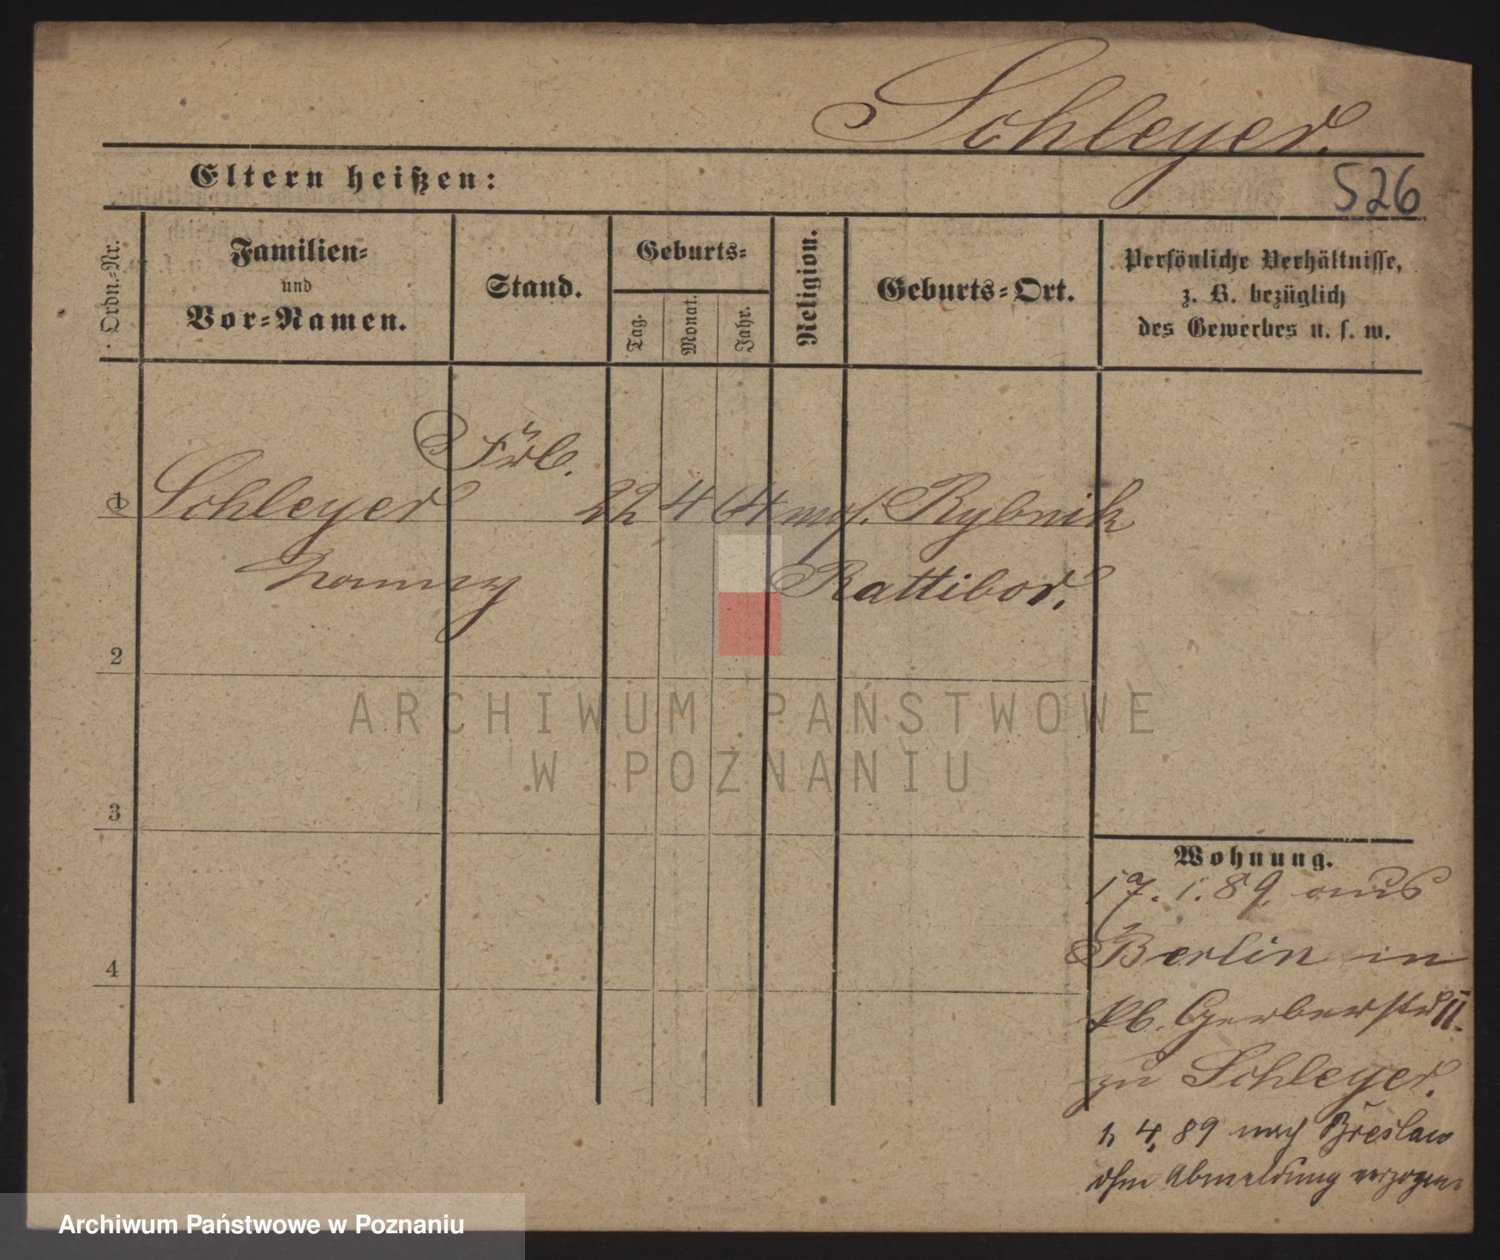 Schleyer.
Eltern heißen:
526
Ordn.-Nr.
Familien-
und
Vor-Namen.
Stand.
Geburts-
Tag.
Monat.
Jahr.
Religion.
Geburts-Ort.
Persönliche Verhältnisse,
z. B. bezüglich
des Gewerbes u. s. w.
Frl.
1 Schleyer 22 4 64 mos. Rybnik
Nanny Rattibor.
2
ARCHIWUM PAŃSTWOWE
W POZNANIU
3
Wohnung.
17. 1. 89. aus
Berlin in
Gerberstr 11.
zu Schleyer.
1. 4. 89 nach Breslau
ohne Abmeldung verzogen
4
Archiwum Państwowe w Poznaniu